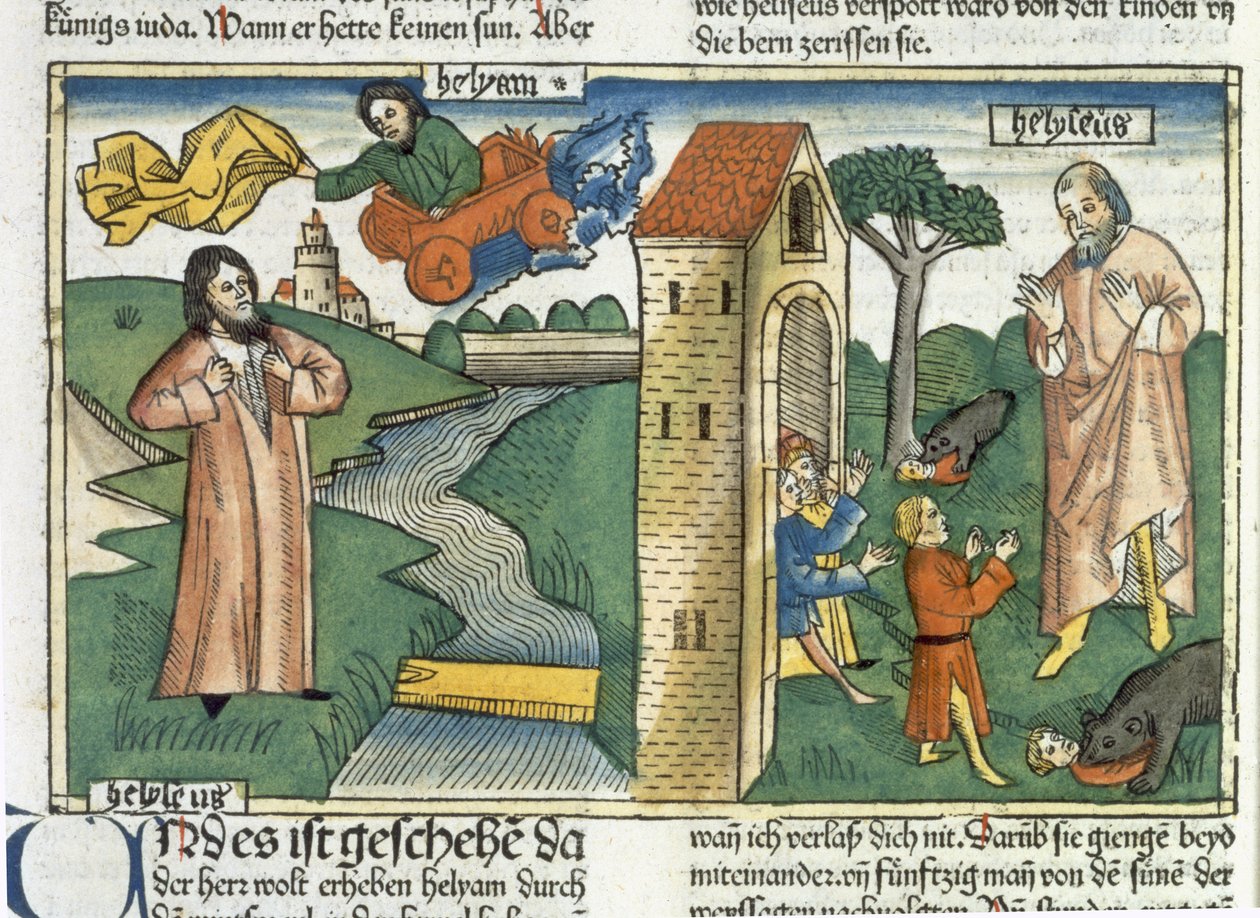 künigs iuda. Wann er hette keinen sun. Aber
wie heliseus verspott ward von den kinden vñ
die bern zerissen sie.
helyam
helyseus
helyseus
UNd es ist geschehē da
der herr wolt erheben helyam durch
wañ ich verlaß dich nit. Darūb sie giengē beyd
miteinander. vñ fünftzig mañ von dē sünē der